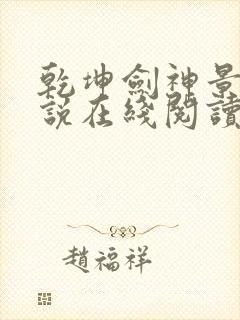 乾坤劍神景
說在綫閱讀
趙福祥